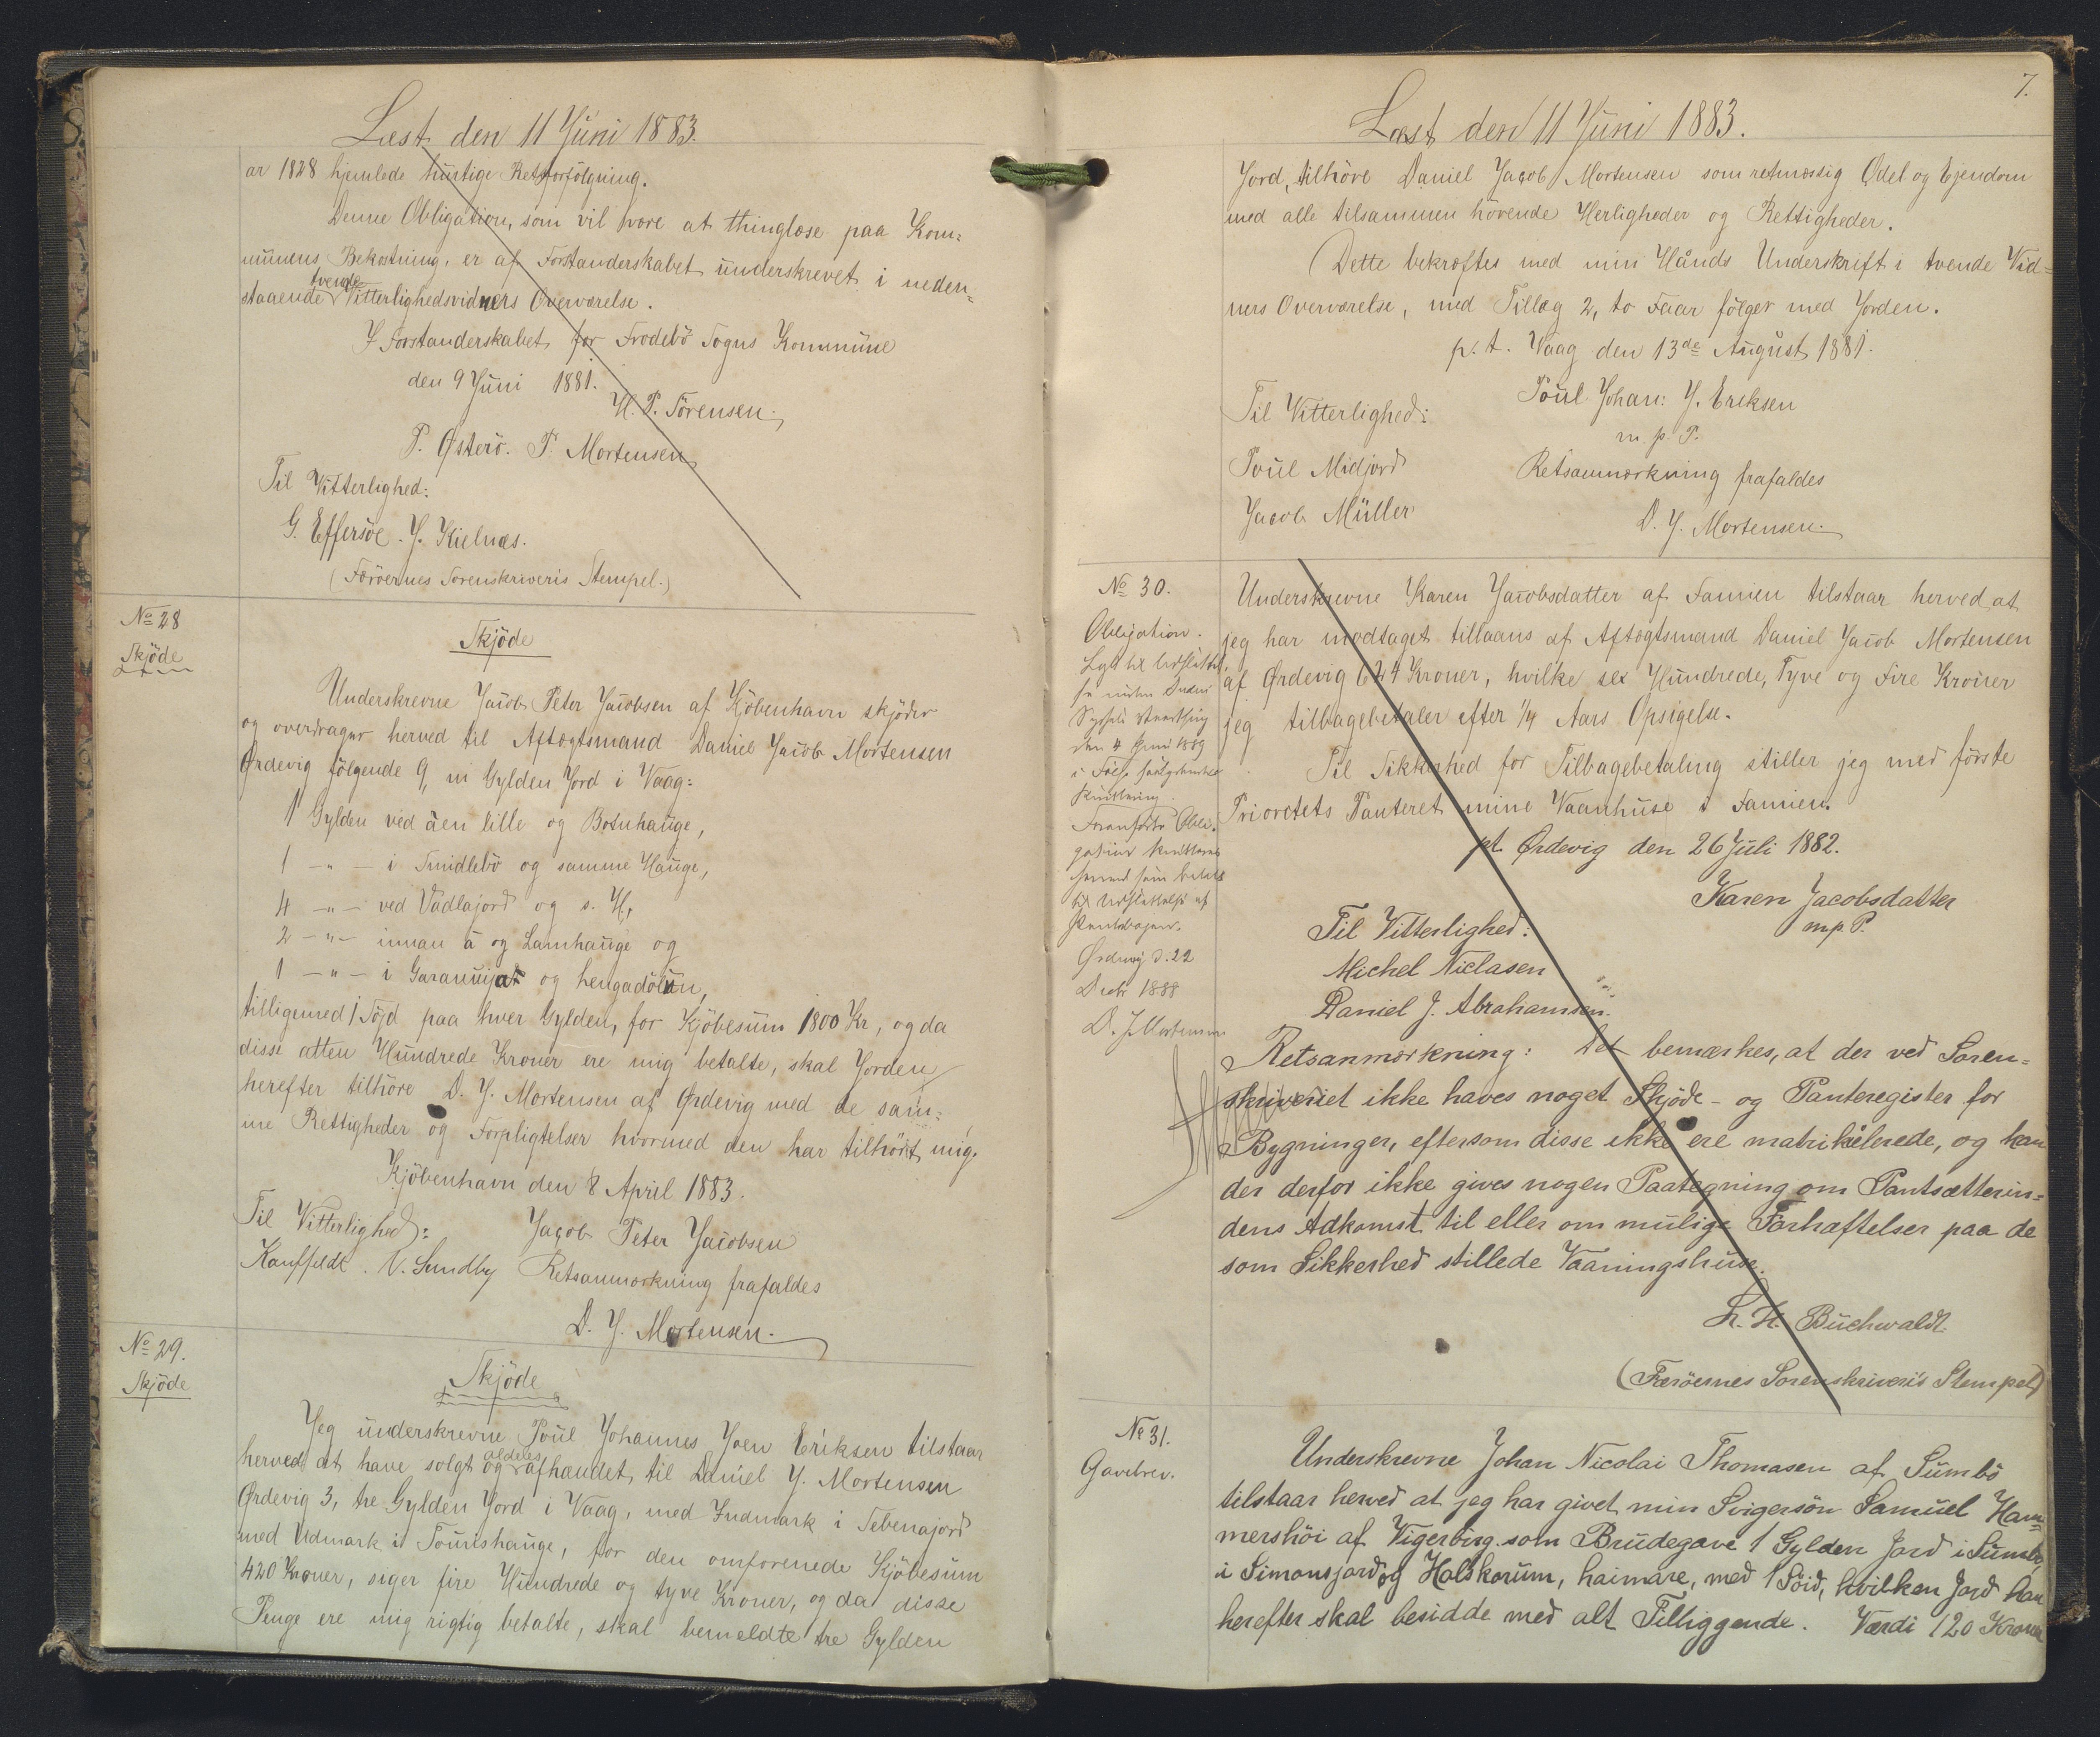 Læst den 11 Juni 1883.
ar 1828 hjemlede hurtige Retsforfölgning.
Denne Obligation, som vil være at thinglæse paa Kom=
munens Bekostning, er af Forstanderskabet underskrevet i neden=
staaende tvende Vitterlighedsvidners Overværelse.
I Forstanderskabet for Frodebö Sogns Kommune
den 9 Juni 1881.
H. P. Sörensen.
P. Österö. P. Mortensen
Til Vitterlighed:
G. Effersöe. J. Kielnæs.
(Færöernes Sorenskriveris Stempel.)
No 28
Skjöde
Skjöde
Underskrevne Jacob Peter Jacobsen af Kjöbenhavn skjöder
og overdrager herved til Aftægtsmand Daniel Jacob Mortensen
Ördevig fölgende 9, ni Gylden Jord i Vaag:
1 Gylden ved åen lille og Botnhauge,
1 -"- i Smidlebö og samme Hauge,
4 -"- ved Vadlajord og s. H,
2 -"- innan å og Lamhauge og
1 -"- i Garanuijat og hengadölun,
tilligemed 1 Söjd paa hver Gylden, for Kjöbesum 1800 Kr, og da
disse atten Hundrede Kroner ere mig betalte, skal Jorden
herefter tilhöre D. J. Mortensen af Ördevig med de sam=
me Rettigheder og Forpligtelser hvormed den har tilhört mig.
Kjöbenhavn den 8 April 1883.
Til Vitterlighed: Jacob Peter Jacobsen
Kauffeldt. V. Sundby Retsanmærkning frafaldes
D. J. Mortensen.
No 29.
Skjöde
Skjöde
Jeg underskrevne Poul Johannes Joen Eriksen tilstaar
herved at have solgt og aldeles afhændet til Daniel J. Mortensen
Ördevig 3, tre Gylden Jord i Vaag, med Indmark i Tebenajord
med Udmark i Tourishauge, for den omforenede Kjöbesum
420 Kroner, siger fire Hundrede og tyve Kroner, og da disse
Penge ere mig rigtig betalte, skal bemeldte tre Gylden
7.
Læst den 11 Juni 1883.
Jord, tilhöre Daniel Jacob Mortensen som retmæssig Odel og Ejendom
med alle tilsammen hörende Herligheder og Rettigheder.
Dette bekræftes med min Hånds Underskrift i tvende Vid=
ners Overværelse, med Tillæg 2, to Faar fölger med Jorden.
p. t. Vaag den 13de August 1881.
Til Vitterlighed: Poul Johan: J. Ereksen
m. p. P.
Poul Midjord Retsanmærkning frafaldes
Jacob Müller D. J. Mortensen.
No 30.
Obligation.
Lyst til Udslettel
den 4 Juni 1889
Kvittering.
Foranförte Obli=
gation kvitteres
herved som betalt
til Udslettelse af
Pantebogen.
Ördevig d. 22
Decbr 1888
D. J. Mortensen
Underskrevne Karen Jacobsdatter af Famien tilstaar herved, at
jeg har modtaget tillaans af Aftægtsmand Daniel Jacob Mortensen
af Ördevig 624 Kroner, hvilke sex Hundrede, Tyve og Fire Kroner
jeg tilbagebetaler efter 1/4 Aars Opsigelse.
Til Sikkerhed for Tilbagebetaling stiller jeg med förste
Prioretets Panteret mine Vaanhuse i Famien.
pt. Ördevig den 26 Juli 1882.
Karen Jacobsdatter
mp. P.
Til Vitterlighed:
Michel Niclasen
Daniel J. Abrahamsen.
Retsanmærkning: Det bemærkes, at der ved Soren=
skriveriet ikke haves noget Skjöde- og Panteregister for
Bygninger, eftersom disse ikke ere matrikulerede, og kan
der derfor ikke gives nogen Paategning om Pantsætterin=
dens Adkomst til eller om mulige Forhæftelser paa de
som Sikkerhed stillede Vaaningshuse.
L. H. Buchwaldt.
(Færöernes Sorenskriveris Stempel)
No 31.
Gavebrev.
Underskrevne Johan Nicolai Thomasen af Sumbö
tilstaar herved at jeg har givet min Svigersön Samuel Ham=
mershöi af Vigerbirg som Brudegave 1 Gylden Jord i Sumbö,
i Simonsjord og Halskorum, haimare, med 1 Söid, hvilken Jord han
herefter skal besidde med alt Tilliggende. Værdi 120 Kroner